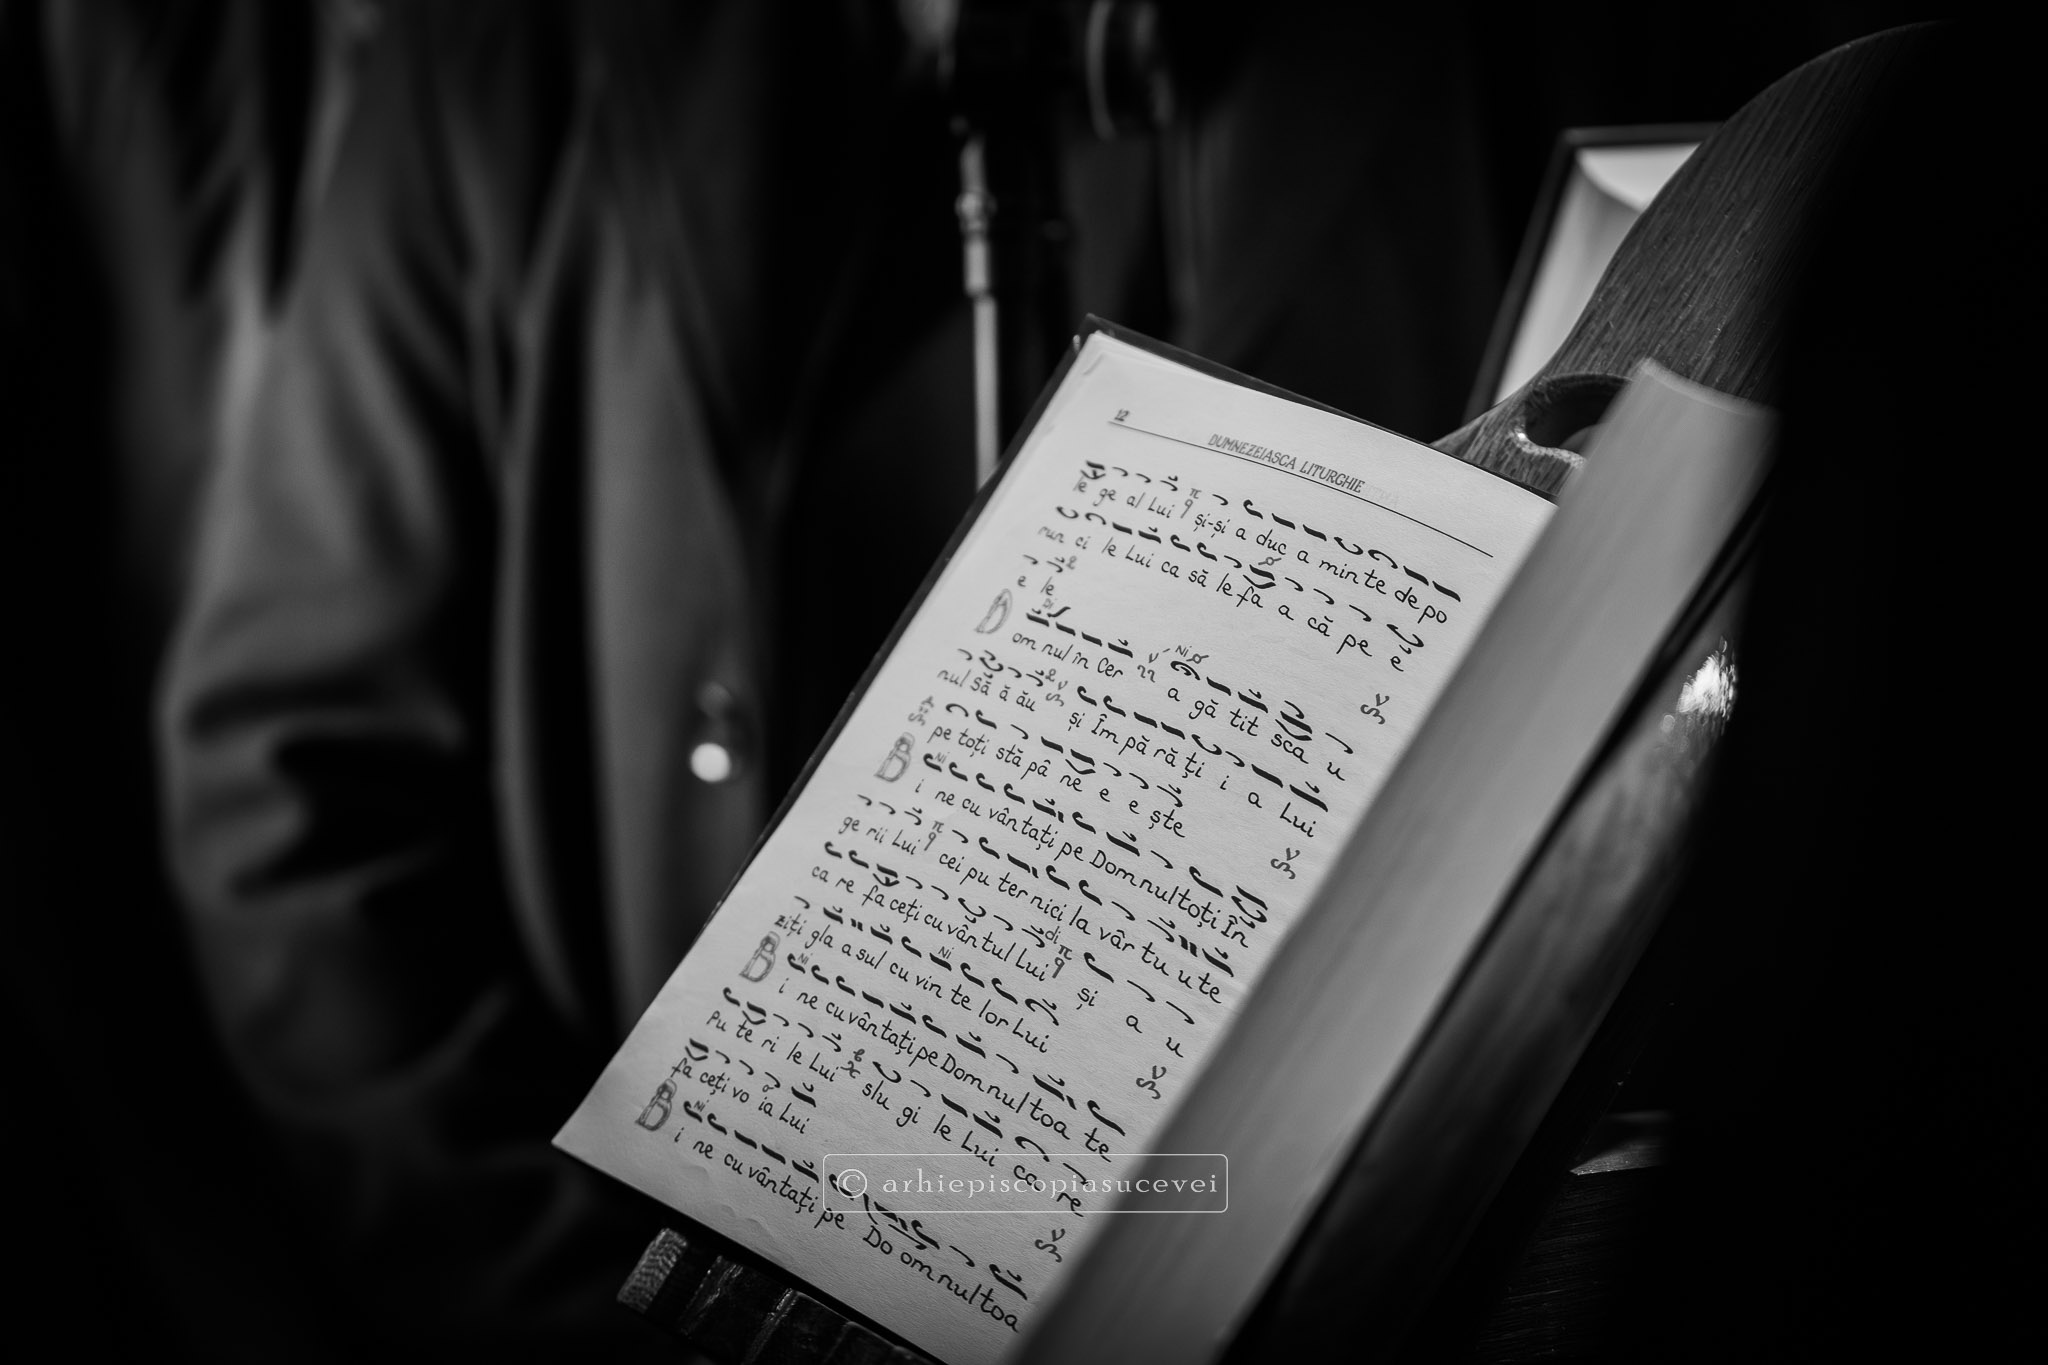 12
DUMNEZEIASCA LITURGHIE
le ge al Lui și-și a duc a min te de po
run ci le Lui ca să le fa a că pe e
e le
Di
Ni
D om nul în Cer a gă tit sca u
nul Să ă ău și Îm pă ră ţi i a Lui
pe toți stă pâ ne e e ște
Ni
B i ne cu vân taţi pe Dom nul toți În
ge rii Lui cei pu ter nici la vâr tu u te
ca re fa ceți cu vân tul Lui și a u
di
ziți gla a sul cu vin te lor Lui
Ni
Ni
B i ne cu vân taţi pe Dom nul toa te
pu te ri le Lui slu gi le Lui ca re
fa ceți vo ia Lui
Ni
B i ne cu vân taţi pe Do om nul toa
© arhiepiscopiasucevei